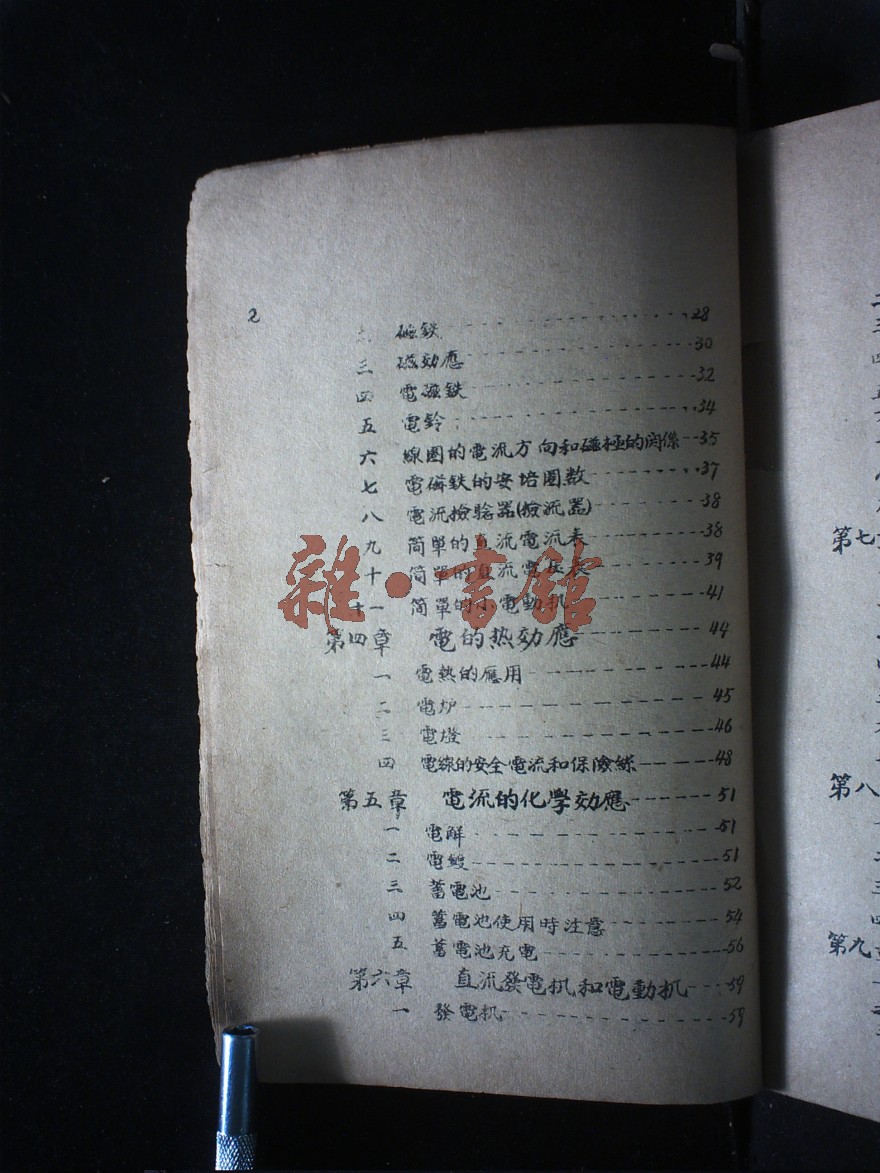 2
磁鉄 28
三 磁効應 30
四 電磁鉄 32
五 電鈴 34
六 線圈的電流方向和磁極的関係 35
七 電磁鉄的安培圈数 37
八 電流撿驗器(撿流器) 38
九 简單的直流電流表 38
十 简單的直流電压表 39
十一 简單的小電動机 41
第四章 電的热効應 44
一 電熱的應用 44
二 電炉 45
三 電燈 46
四 電線的安全電流和保險絲 48
第五章 電流的化學効應 51
一 電解 51
二 電鍍 51
三 蓄電池 52
四 蓄電池使用時注意 54
五 蓄電池充電 56
第六章 直流發電机和電動机 59
一 發電机 59
雜·書館
二
三
四
第七
第八
一
二
三
四
第九
一